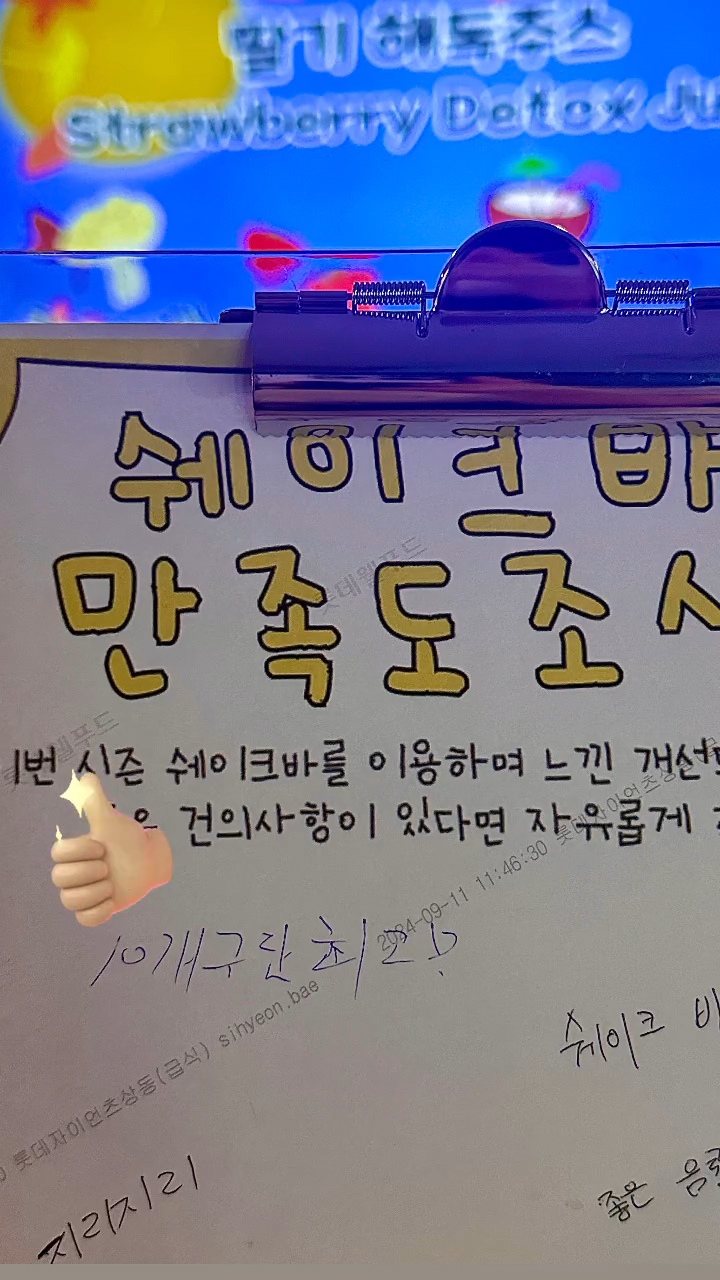 딸기 해독주스
Strawberry Detox Ju
쉐이크바
만족도조사
이번 시즌 쉐이크바를 이용하며 느낀 개선
건의사항이 있다면 자유롭게
롯데웰푸드
2024-09-11 11:46:30 롯데자이언츠상
10개구단 최고!
롯데자이언츠상동(급식) sihyeon.bae
쉐이크 바
지리지리
좋은 음료